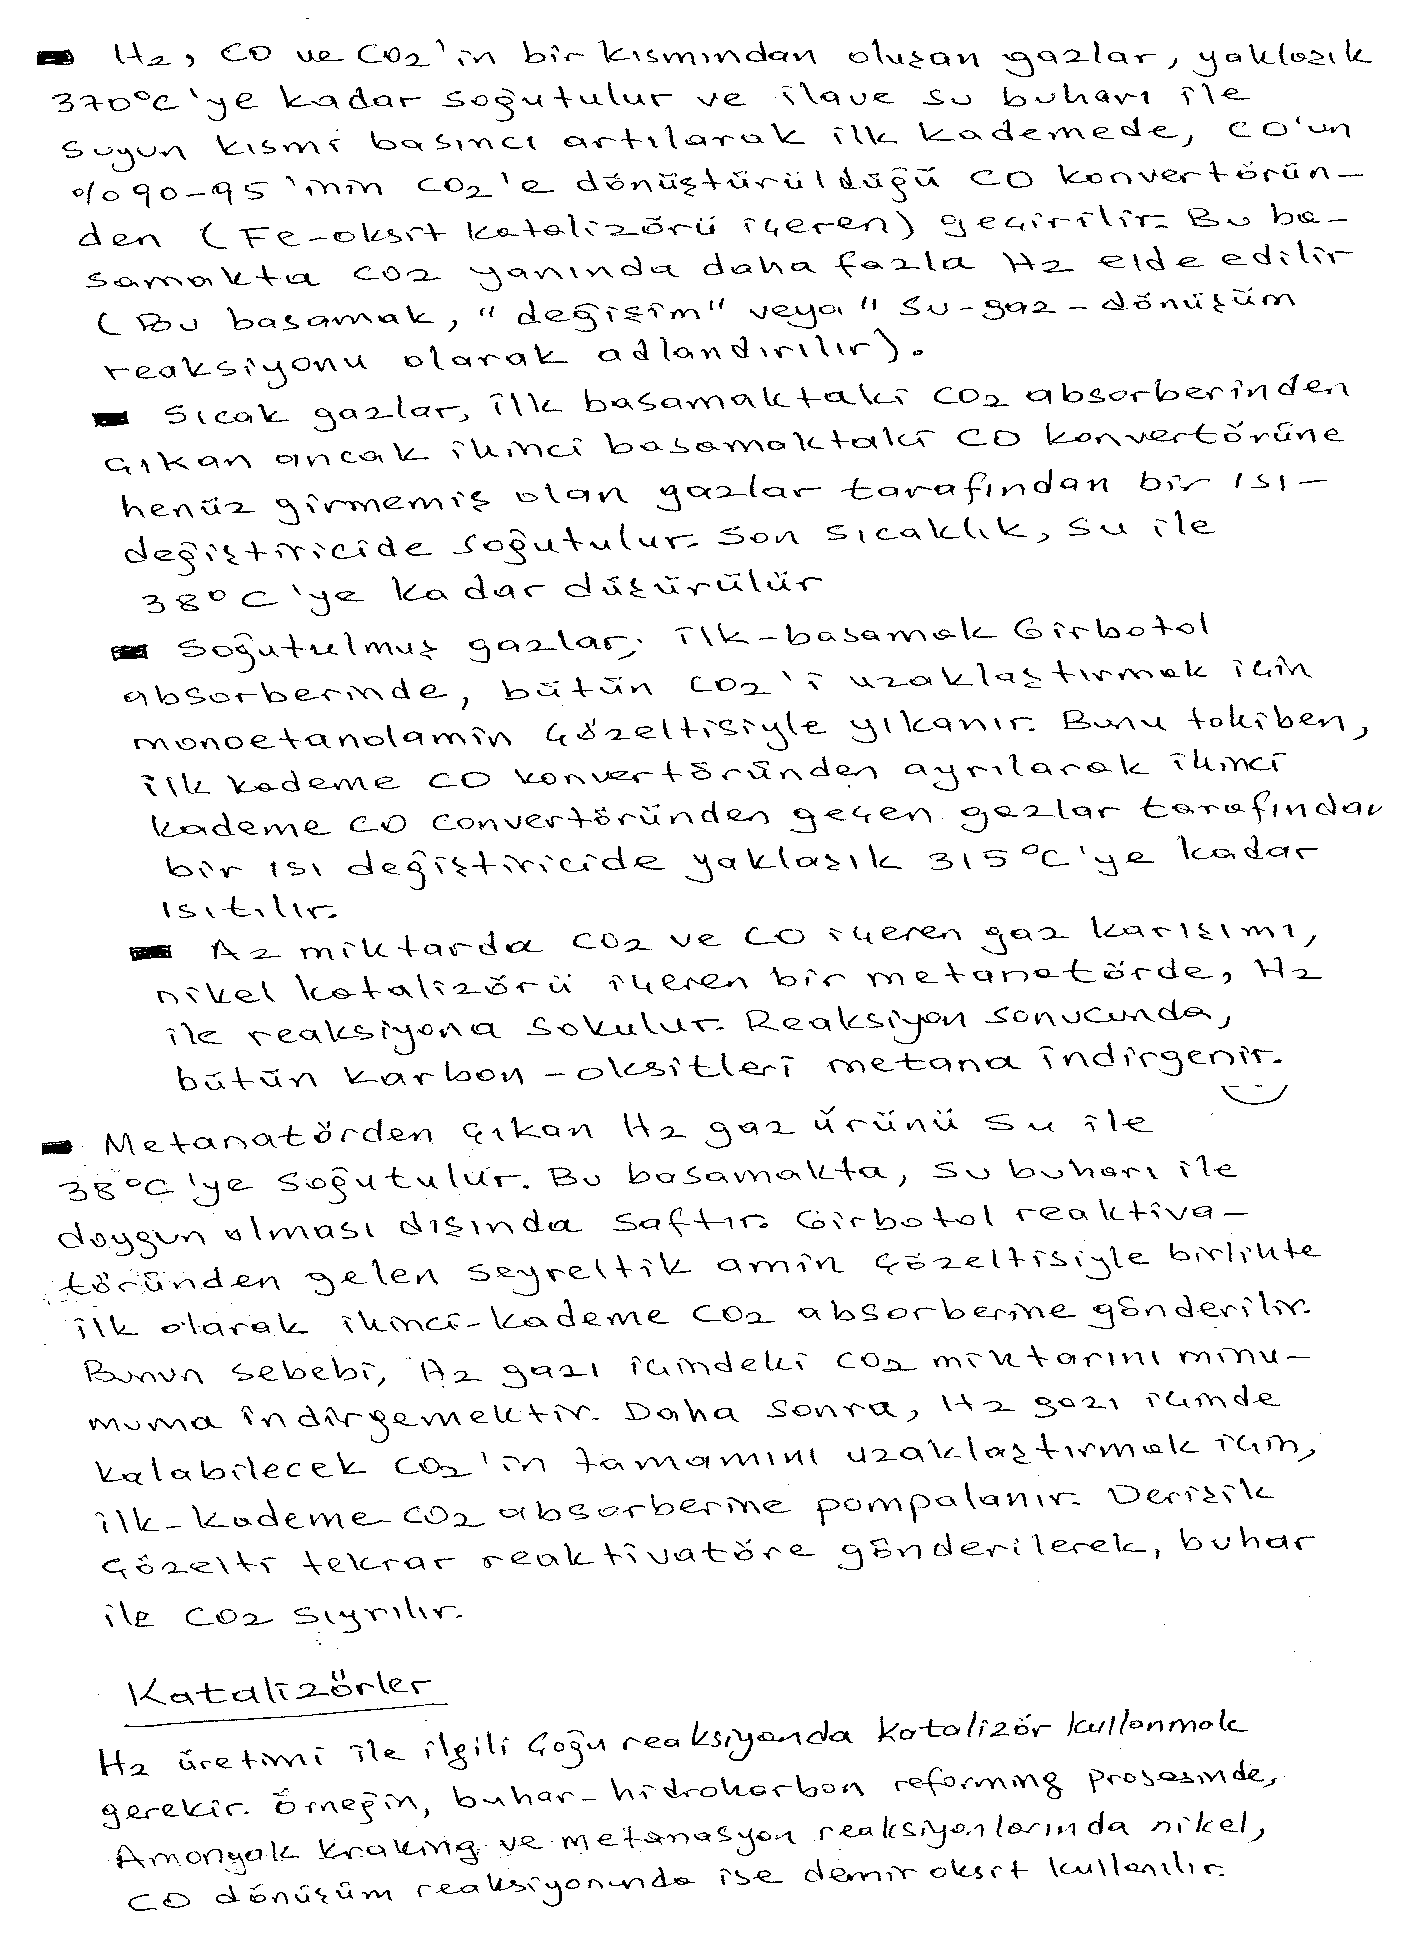 - H2, CO ve CO2'in bir kısmından oluşan gazlar, yaklaşık
370°C'ye kadar soğutulur ve ilave su buharı ile
suyun kısmi basıncı artılarak ilk kademede, CO'un
%90-95'inin CO2'e dönüştürüldüğü CO konvertörün-
den (Fe-oksit katalizörü içeren) geçirilir. Bu ba-
samakta CO2 yanında daha fazla H2 elde edilir
(Bu basamak, "değişim" veya "su-gaz-dönüşüm
reaksiyonu olarak adlandırılır).
- Sıcak gazlar, ilk basamaktaki CO2 absorberinden
çıkan ancak ikinci basamaktaki CO konvertörüne
henüz girmemiş olan gazlar tarafından bir ısı-
değiştiricide soğutulur. Son sıcaklık, su ile
38°C'ye kadar düşürülür
- Soğutulmuş gazlar, ilk-basamak Girbotol
absorberinde, bütün CO2'i uzaklaştırmak için
monoetanolamin çözeltisiyle yıkanır. Bunu takiben,
ilk kademe CO konvertöründen ayrılarak ikinci
kademe CO convertöründen geçen gazlar tarafından
bir ısı değiştiricide yaklaşık 315°C'ye kadar
ısıtılır.
- Az miktarda CO2 ve CO içeren gaz karışımı,
nikel katalizörü içeren bir metanatörde, H2
ile reaksiyona sokulur. Reaksiyon sonucunda,
bütün karbon-oksitleri metana indirgenir.
- Metanatörden çıkan H2 gaz ürünü su ile
38°C'ye soğutulur. Bu basamakta, su buharı ile
doygun olması dışında saftır. Girbotol reaktiva-
töründen gelen seyreltik amin çözeltisiyle birlikte
ilk olarak ikinci-kademe CO2 absorberine gönderilir.
Bunun sebebi, H2 gazı içindeki CO2 miktarını minu-
muma indirgemektir. Daha sonra, H2 gazı içinde
kalabilecek CO2'in tamamını uzaklaştırmak için,
ilk-kademe CO2 absorberine pompalanır. Derişik
çözelti tekrar reaktivatöre gönderilerek, buhar
ile CO2 sıyrılır.
Katalizörler
H2 üretimi ile ilgili çoğu reaksiyonda katalizör kullanmak
gerekir. Örneğin, buhar-hidrokarbon reforming prosesinde,
Amonyak kraking ve metanasyon reaksiyonlarında nikel,
CO dönüşüm reaksiyonunda ise demir oksit kullanılır.